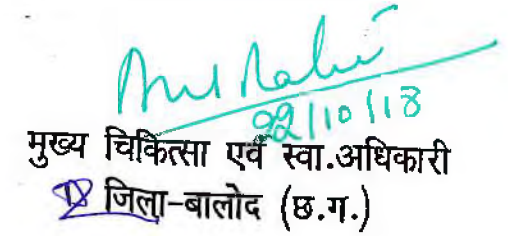 22/10/18
मुख्य चिकित्सा एवं स्वा.अधिकारी
जिला-बालोद (छ.ग.)